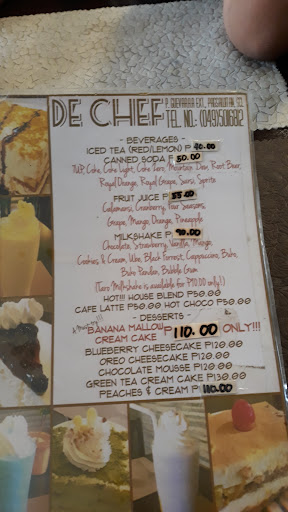 DE CHEF
P. GUEVARRA EXT., PAGSANJAN,
TEL NO.: (049)5016812
- BEVERAGES -
ICED TEA (RED/LEMON) P 40.00
CANNED SODA P 50.00
7UP, Coke, Coke Light, Coke Zero, Mountain Dew, Root Beer,
Royal Orange, Royal Grape, Sarsi, Sprite
FRUIT JUICE P 55.00
Calamansi, Cranberry, Four Seasons,
Grape, Mango, Orange, Pineapple
MILKSHAKE P 90.00
Chocolate, Strawberry, Vanilla, Mango,
Cookies & Cream, Ube, Black Forrest, Cappuccino, Buko,
Buko Pandan, Bubble Gum
(Taro Milkshake is available for P90.00 only!)
HOT!!! HOUSE BLEND P50.00
CAFE LATTE P50.00 HOT CHOCO P50.00
- DESSERTS -
"BANANA MALLOW
CREAM CAKE P 110.00 ONLY!!!
BLUEBERRY CHEESECAKE P120.00
OREO CHEESECAKE P120.00
CHOCOLATE MOUSSE P120.00
GREEN TEA CREAM CAKE P130.00
PEACHES & CREAM P 110.00